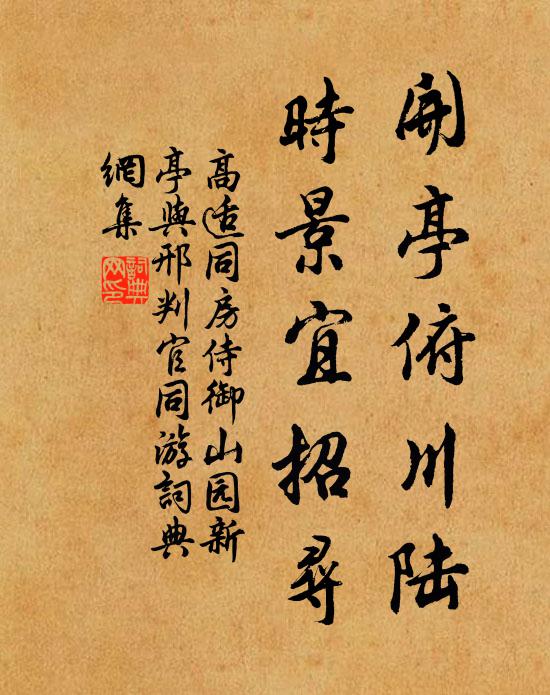 開亭俯川陆
時景宜招尋
高适同房侍御山园新
亭與邢判官同游詞典
網集
詞典网印